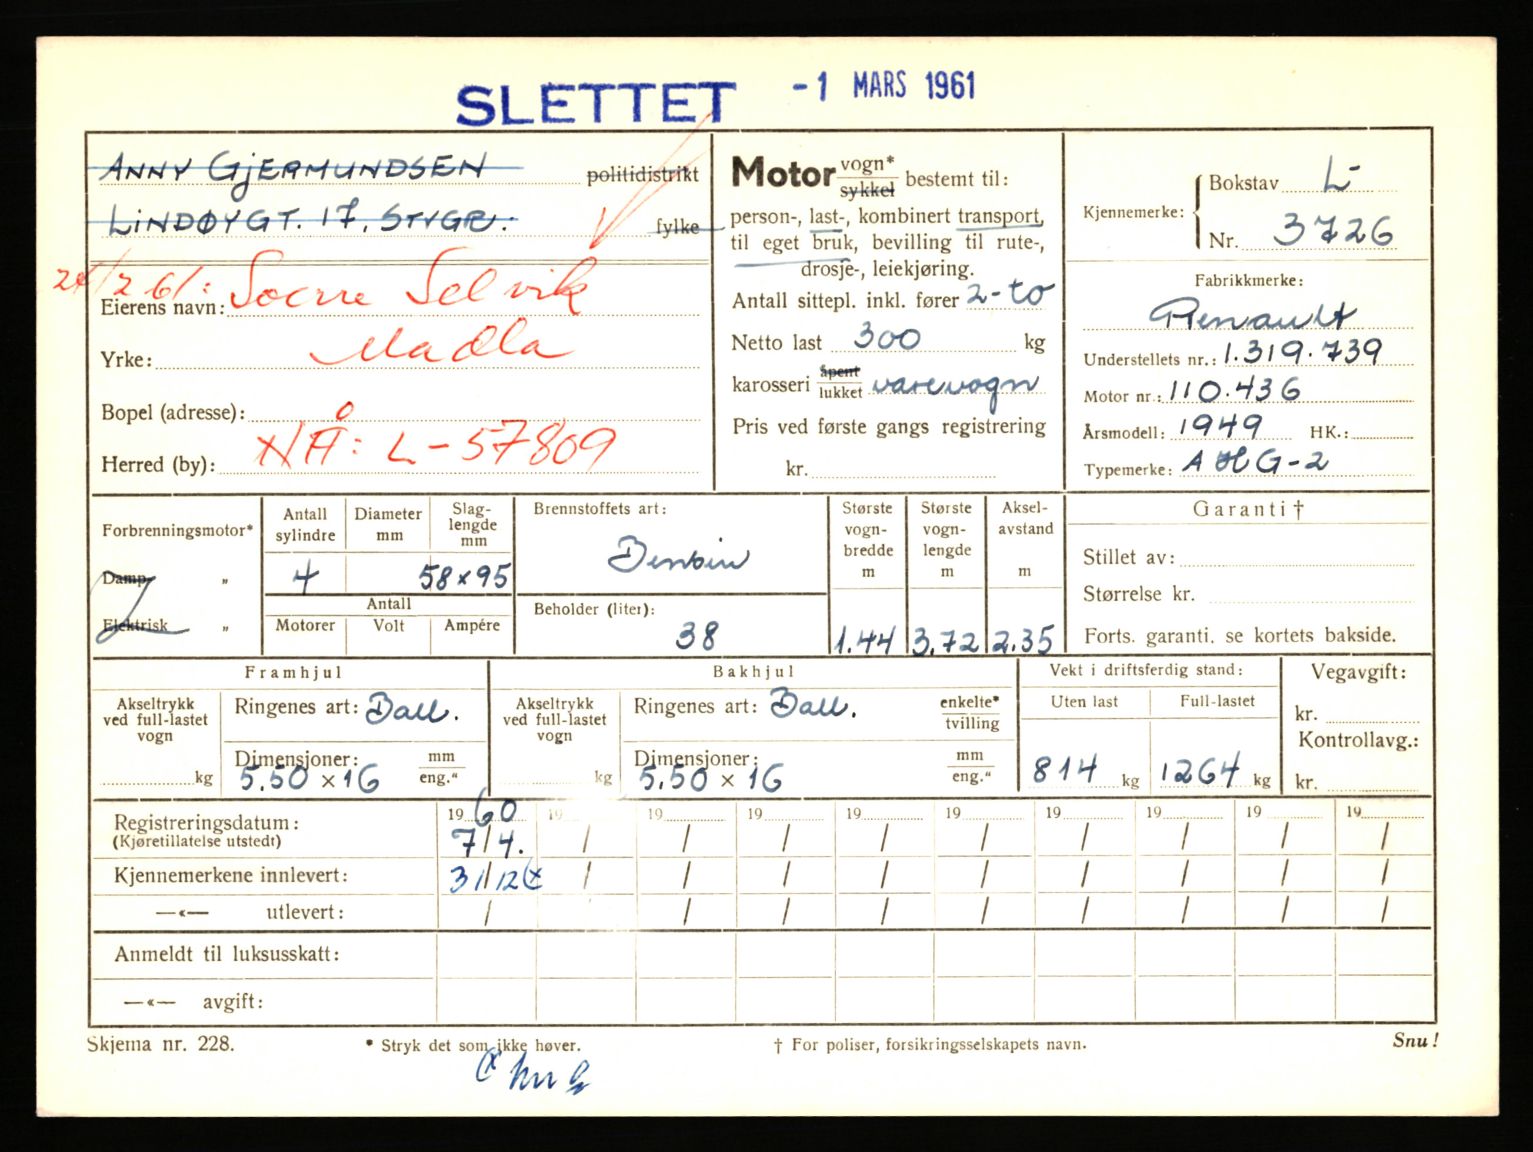 SLETTET -1 MARS 1961
ANNY GJERMUNDSEN politidistrikt
LINDØYGT. 17, fylke
24/2 61:
Eierens navn: Selvik
Yrke: Madla
Bopel (adresse):
Herred (by): NÅ: L-57809
Motor vogn* sykkel bestemt til:
person-, last-, kombinert transport,
til eget bruk, bevilling til rute-,
drosje-, leiekjøring.
Antall sittepl. inkl. fører 2-to
Netto last 300 kg
karosseri åpent lukket varevogn
Pris ved første gangs registrering
kr.
Kjennemerke: { Bokstav L-
Nr. 3726
Fabrikkmerke:
Renault
Understellets nr.: 1.319.739
Motor nr.: 110.436
Årsmodell: 1949 HK.:
Typemerke: A H G-2
Forbrenningsmotor*
Damp „
Elektrisk „
Antall sylindre Diameter mm Slag-lengde mm
4 58×95
Antall
Motorer Volt Ampére
Brennstoffets art:
Bensin
Beholder (liter):
38
Største vogn-bredde m Største vogn-lengde m Aksel-avstand m
1.44 3.72 2.35
Garanti †
Stillet av:
Størrelse kr.
Forts. garanti. se kortets bakside.
Framhjul
Akseltrykk ved full-lastet vogn kg
Ringenes art: Ball.
Dimensjoner: mm eng.“
5.50 × 16
Bakhjul
Akseltrykk ved full-lastet vogn kg
Ringenes art: Ball. enkelte* tvilling
Dimensjoner: mm eng.“
5.50 × 16
Vekt i driftsferdig stand:
Uten last Full-lastet
814 kg 1264 kg
Vegavgift:
kr.
Kontrollavg.:
kr.
19 60 19 19 19 19 19 19 19 19 19
Registreringsdatum: 7/4. / / / / / / / / /
(Kjøretillatelse utstedt)
Kjennemerkene innlevert: 31/12 (x / / / / / / / / /
—«— utlevert: / / / / / / / / /
Anmeldt til luksusskatt:
—«— avgift:
Skjema nr. 228. * Stryk det som ikke høver. † For poliser, forsikringsselskapets navn. Snu!